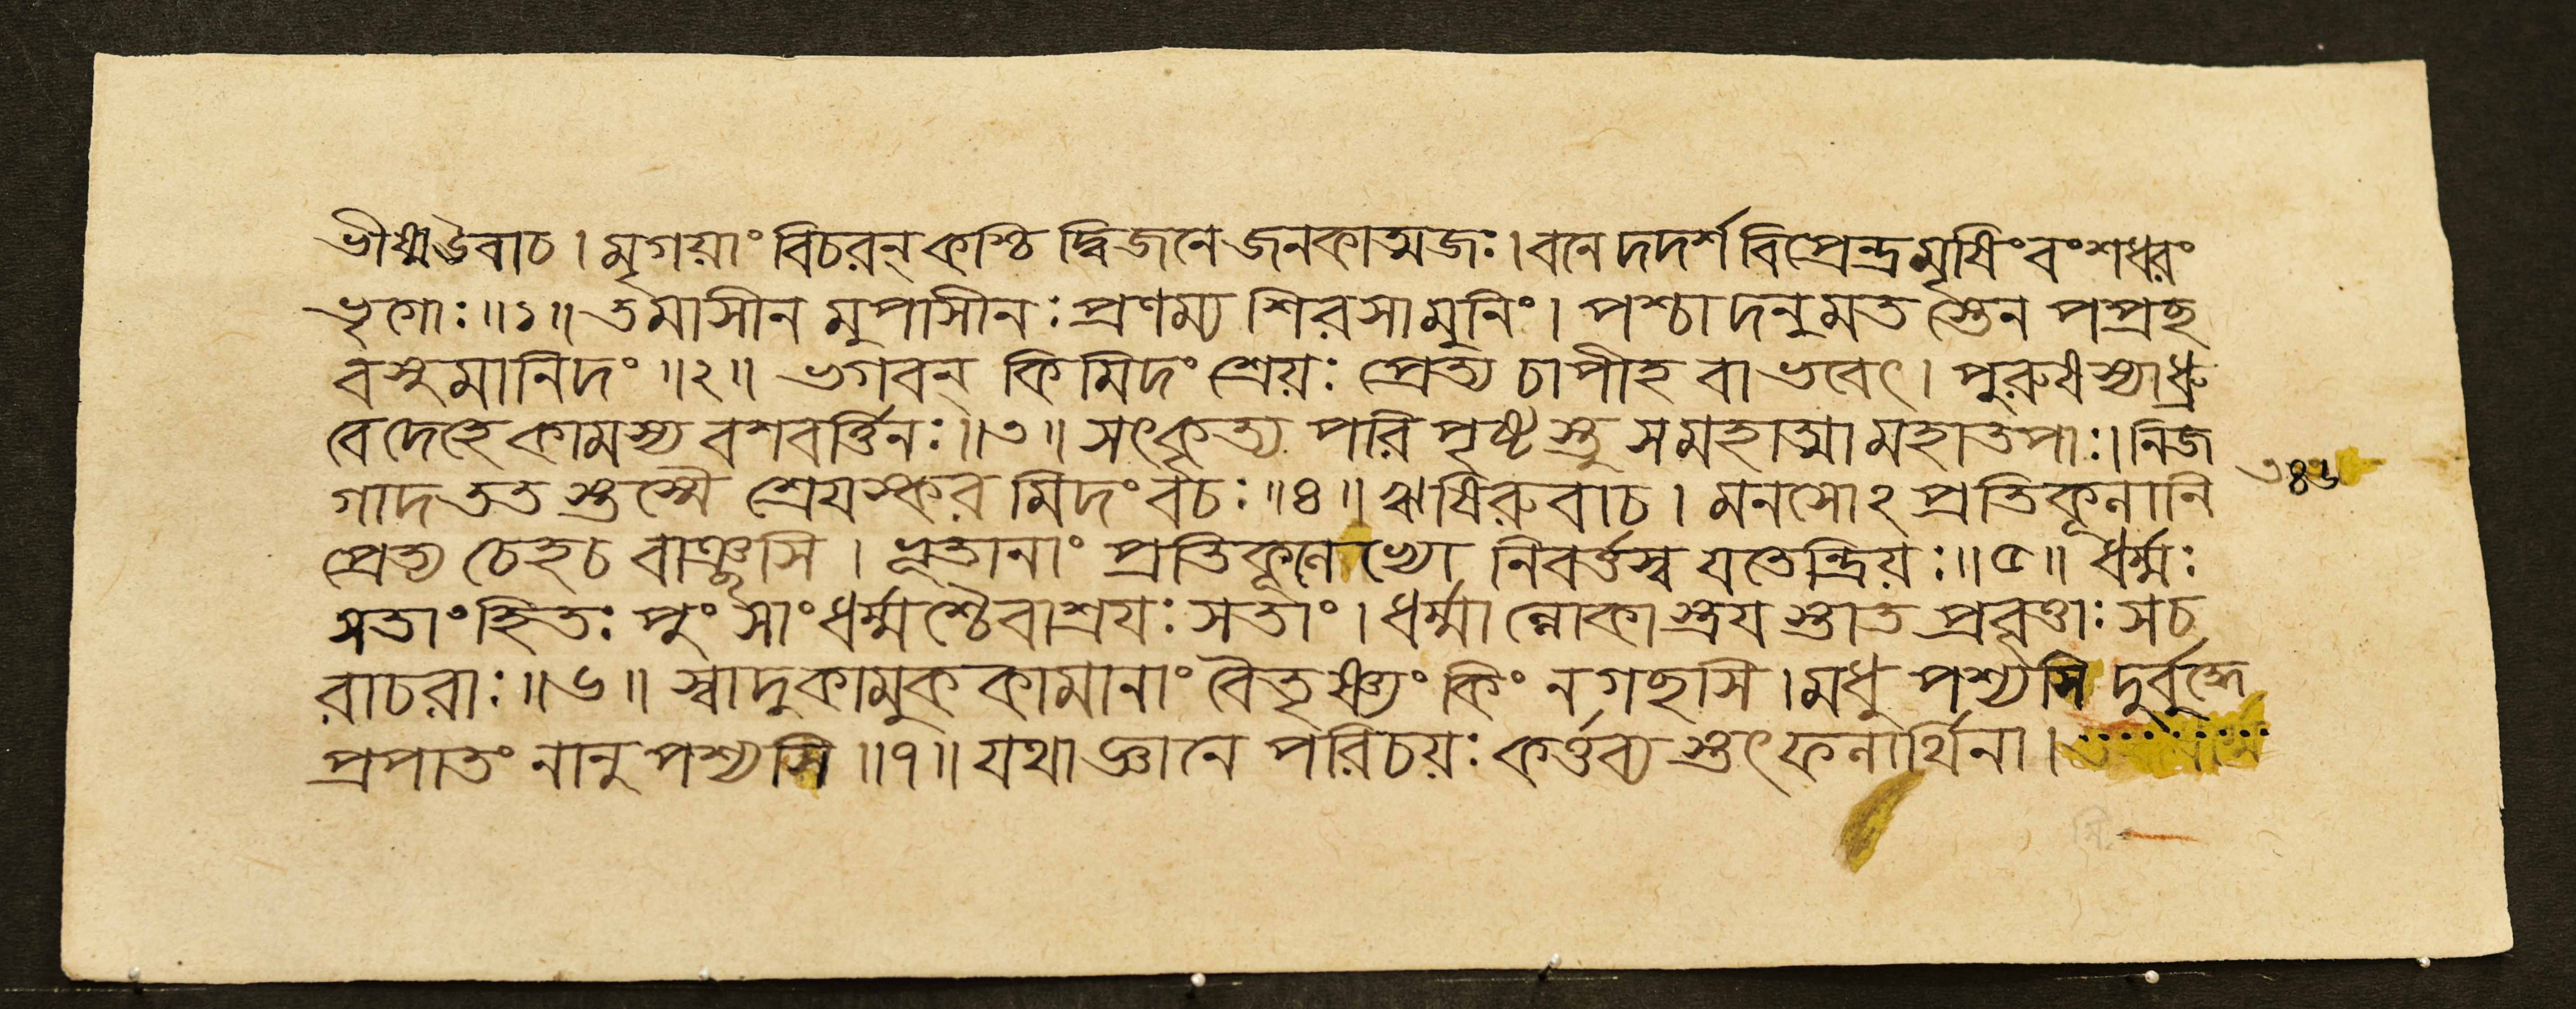 ভীষ্মউবাচ । মৃগয়াং বিচরন্ কশ্চি দ্বিজনে জনকাত্মজঃ । বনে দদর্শ বিপ্রেন্দ্রমৃষিং বংশধরং
ভৃগোঃ ॥১॥ তমাসীন মুপাসীনঃ প্রণম্য শিরসামুনিং । পশ্চা দনুমত স্তেন পপ্রছ
বসুমানিদং ॥২॥ ভগবন্ কিমিদং শ্রেয়ঃ প্রেত্য চাপীহ বা ভবেৎ । পুরুষস্যাধ্রু
বে দেহে কামস্য বশবর্ত্তিনঃ ॥৩॥ সৎকৃত্য পরি পৃষ্ট স্তু সমহাত্মা মহাতপাঃ । নিজ
গাদ তত স্তস্মৈ শ্রেযস্কর মিদং বচঃ ॥৪॥ ঋষিরুবাচ । মনসোঽ প্রতিকূলানি
প্রেত্য চেহচ বাঞ্ছসি । ভূতানাং প্রতিকূলেভ্যো নিবর্ত্তস্ব যতেন্দ্রিয়ঃ ॥৫॥ ধর্ম্মঃ
সতাং হিতঃ পুং সাং ধর্ম্মশ্চৈবাশ্রযঃ সতাং । ধর্ম্মা ল্লোকা স্ত্রয স্তাত প্রবৃত্তাঃ সচ
রাচরাঃ ॥৬॥ স্বাদুকামুক কামানাং বৈতৃষ্ণ্যং কিং ন গছসি । মধু পশ্যসি দুর্বুদ্ধে
প্রপাতং নানু পশ্যসি ॥৭॥ যথা জ্ঞানে পরিচয়ঃ কর্ত্তব্য স্তৎ ফলার্থিনা ।